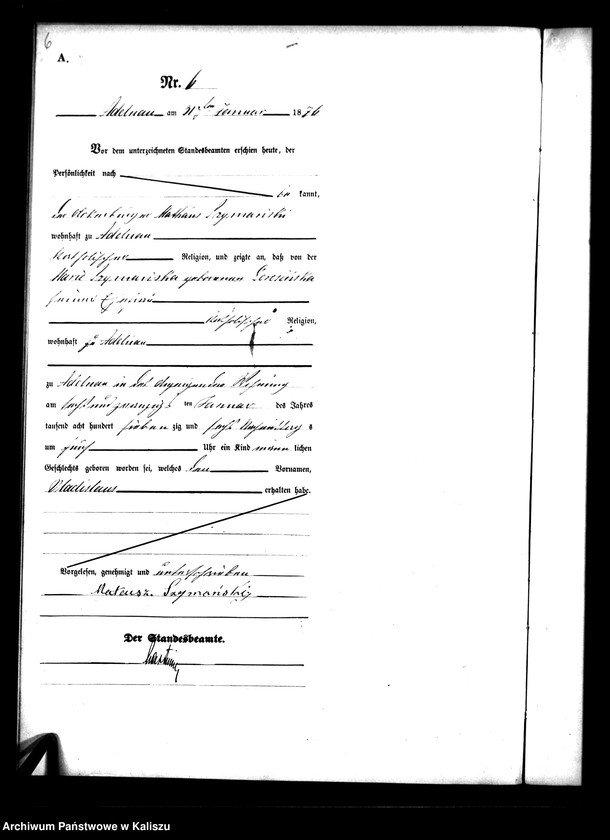 6
A.
Nr. 6
Adelnau am 31ten Januar 1876
Vor dem unterzeichneten Standesbeamten erschien heute, der
Persönlichkeit nach
be kannt,
der Mathäus Szymański
wohnhaft zu Adelnau
katholischer Religion, und zeigte an, daß von der
Marie Szymańska geborenen
seiner Ehefrau
katholischer Religion,
wohnhaft zu Adelnau
zu Adelnau in der Wohnung
am sechs und zwanzigs ten Januar des Jahres
tausend acht hundert sieben zig und sechs Nachmittag s
um fünf Uhr ein Kind männ lichen
Geschlechts geboren worden sei, welches den Vornamen,
Vladislaus erhalten habe.
Vorgelesen, genehmigt und unterschrieben
Mateusz Szymański
Der Standesbeamte.
Archiwum Państwowe w Kaliszu